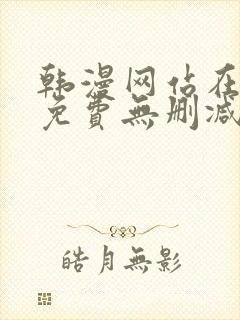 韩漫网站在
免費無删减
皓月無影